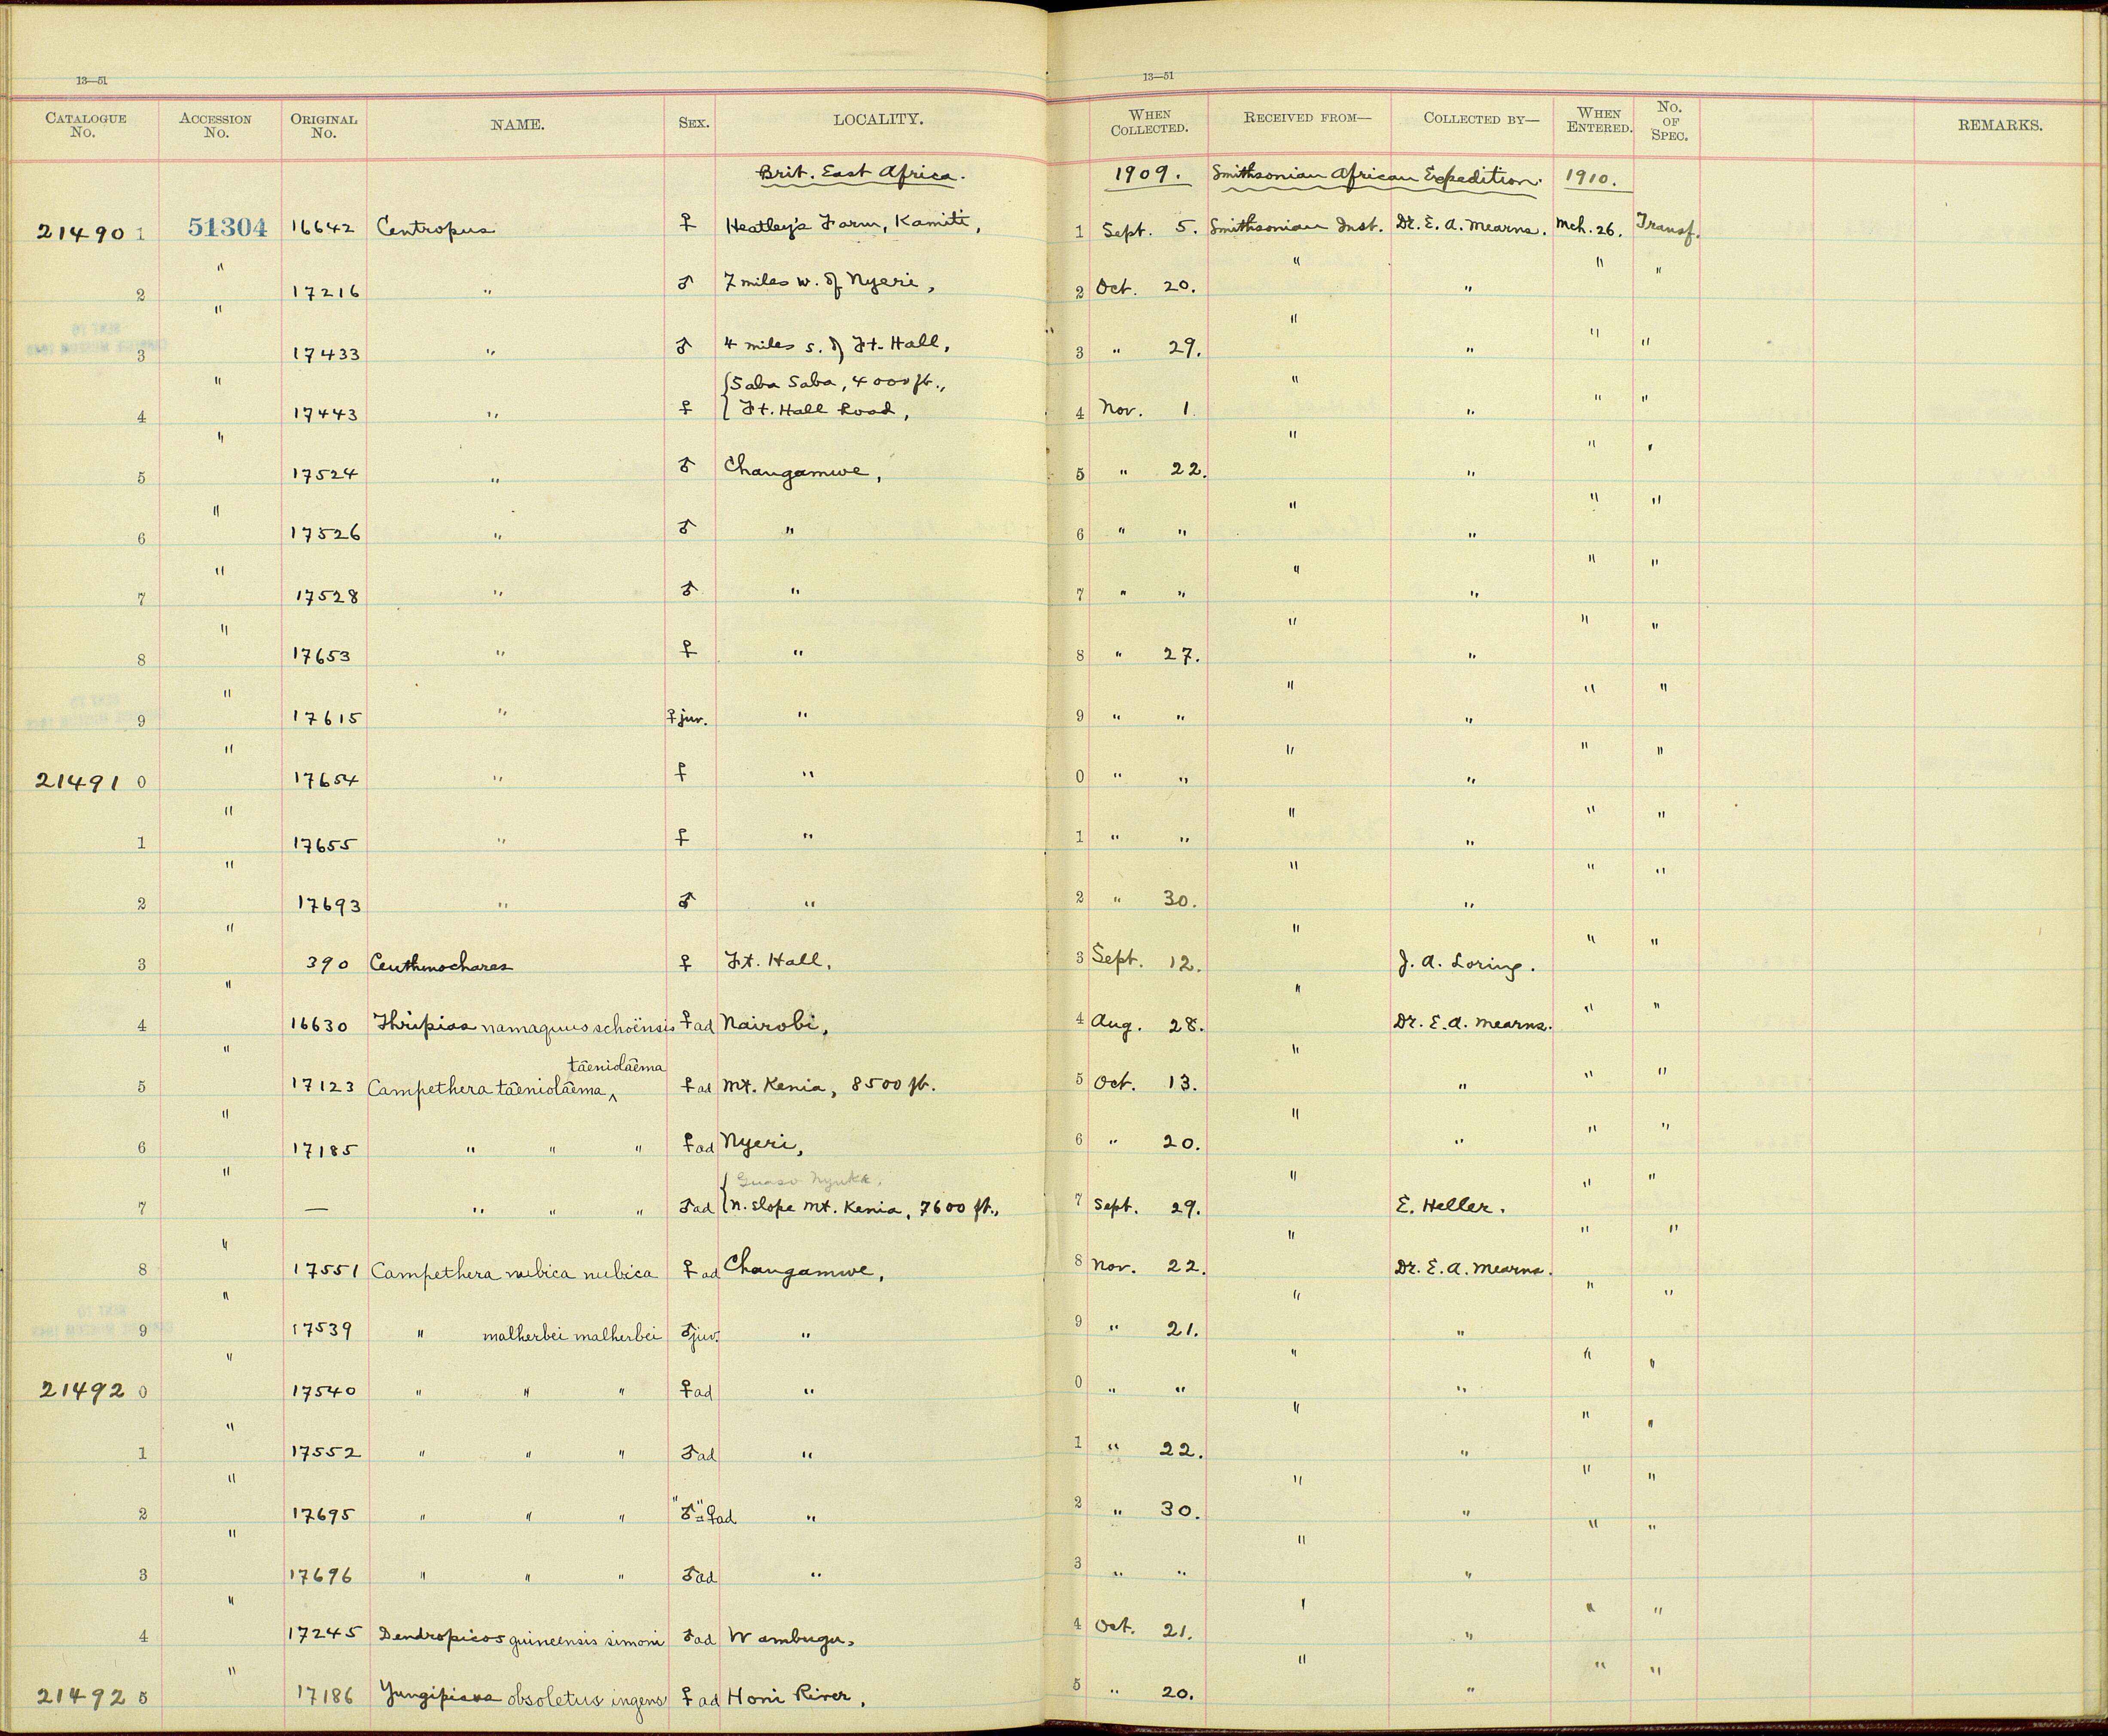 13—51
13—51
CATALOGUE No. ACCESSION No. ORIGINAL No. NAME. SEX. LOCALITY. WHEN COLLECTED. RECEIVED FROM— COLLECTED BY— WHEN ENTERED. No. OF SPEC. REMARKS.
Brit. East Africa. 1909. Smithsonian African Expedition. 1910.
21490 1 51304 16642 Centropus ♀ Heatley's Farm, Kamiti, 1 Sept. 5. Smithsonian Inst. Dr. E. A. Mearns. Mch. 26. Transf.
2 " 17216 " ♂ 7 miles W. of Nyeri, 2 Oct. 20. " " " "
3 " 17433 " ♂ 4 miles S. of Ft. Hall, 3 " 29. " " " "
{Saba Saba, 4000 ft.,
4 " 17443 " ♀ Ft. Hall Road, 4 Nov. 1. " " " "
5 " 17524 " ♂ Changamwe, 5 " 22. " " " "
6 " 17526 " ♂ " 6 " " " " " "
7 " 17528 " ♂ " 7 " " " " " "
8 " 17653 " ♀ " 8 " 27. " " " "
9 " 17615 " ♀ juv. " 9 " " " " " "
21491 0 " 17654 " ♀ " 0 " " " " " "
1 " 17655 " ♀ " 1 " " " " " "
2 " 17693 " ♂ " 2 " 30. " " " "
3 " 390 Ceuthmochares ♀ Ft. Hall, 3 Sept. 12. " J. A. Loring. " "
4 " 16630 Thripias namaquus schoënsis ♀ ad Nairobi, 4 Aug. 28. " Dr. E. A. Mearns. " "
tæniolæma
5 " 17123 Campethera tæniolæma ‸ ♀ ad Mt. Kenia, 8500 ft. 5 Oct. 13. " " " "
6 " 17185 " " " ♀ ad Nyeri, 6 " 20. " " " "
{Guaso Nyuki,
7 " — " " " ♂ ad N. slope Mt. Kenia, 7600 ft., 7 Sept. 29. " E. Heller. " "
8 " 17551 Campethera nubica nubica ♀ ad Changamwe, 8 Nov. 22. " Dr. E. A. Mearns. " "
9 " 17539 " malherbei malherbei ♂ juv. " 9 " 21. " " " "
21492 0 " 17540 " " " ♀ ad " 0 " " " " " "
1 " 17552 " " " ♂ ad " 1 " 22. " " " "
2 " 17695 " " " "♂" = ♀ ad " 2 " 30. " " " "
3 " 17696 " " " ♂ ad " 3 " " " " " "
4 " 17245 Dendropicos guineensis simoni ♂ ad Wambugu, 4 Oct. 21. " " " "
21492 5 " 17186 Yungipicus obsoletus ingens ♀ ad Honi River, 5 " 20. " " " "